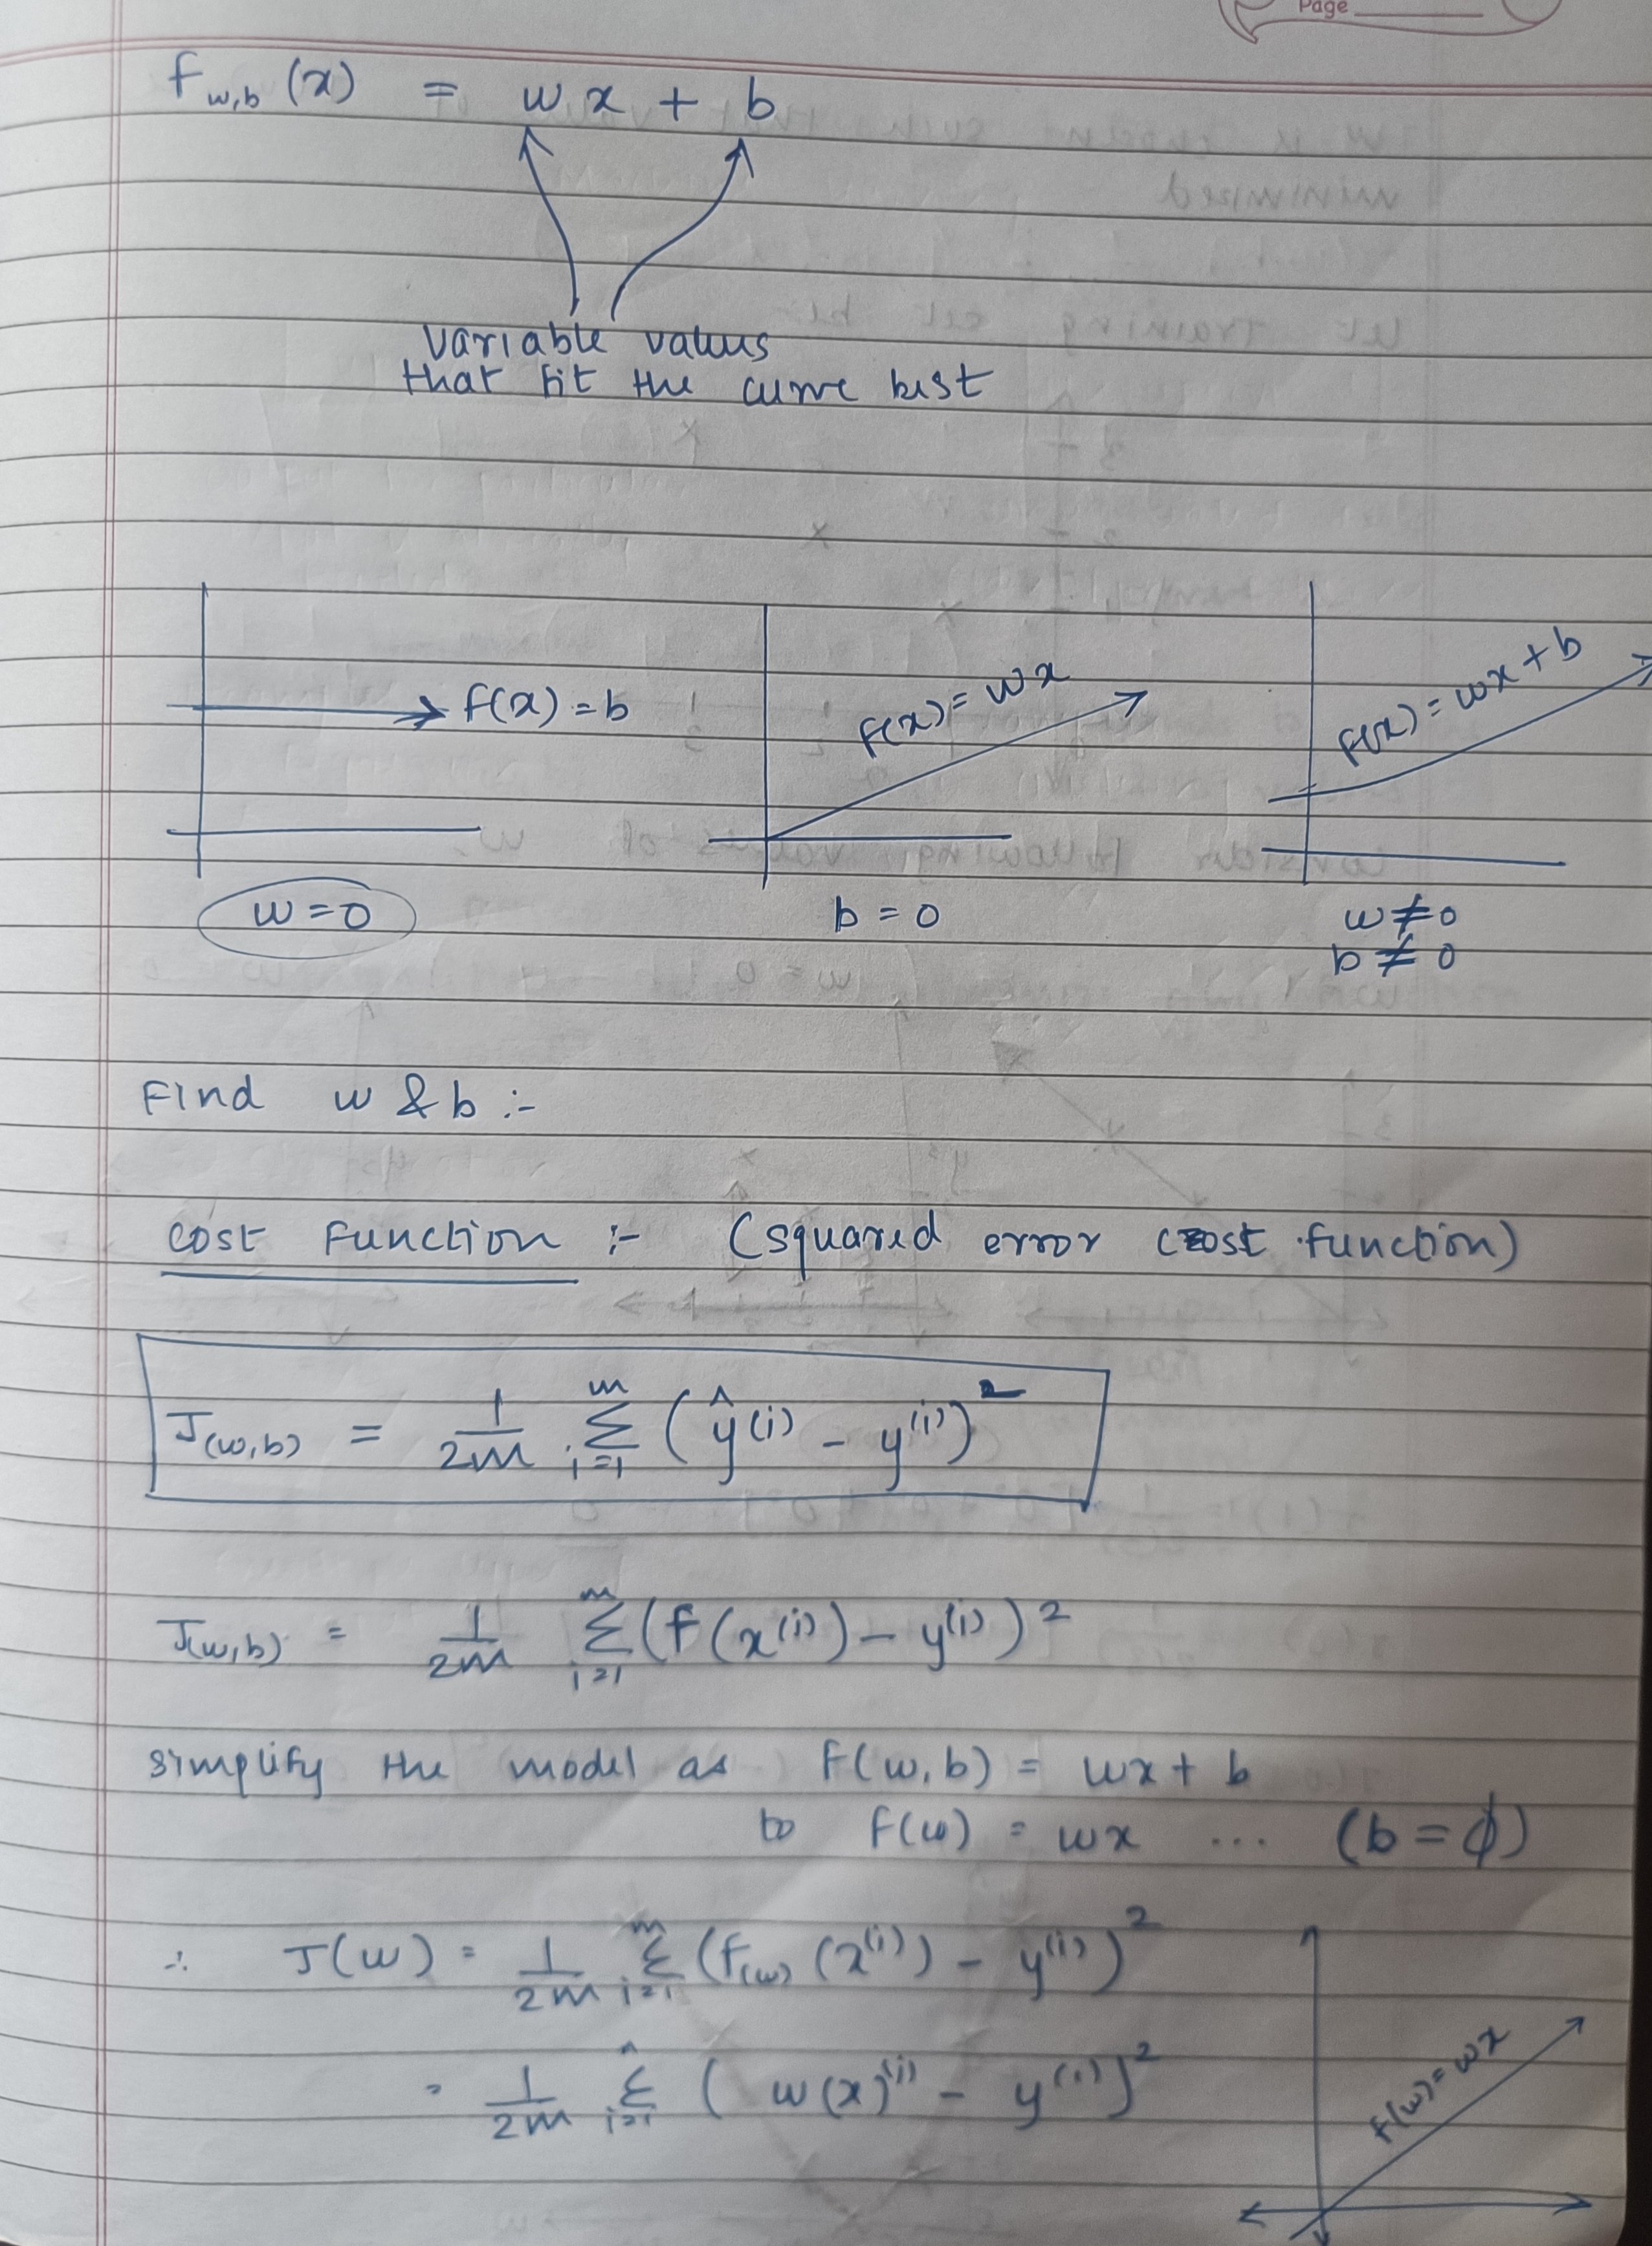 Page
f_{w,b}(x) = wx + b
variable values
that fit the curve best
f(x) = b
f(x) = wx
f(x) = wx + b
w = 0
b = 0
w ≠ 0
b ≠ 0
Find w & b :-
cost function :- (squared error cost function)
J_{(w,b)} = \frac{1}{2m} \sum_{i=1}^{m} (\hat{y}^{(i)} - y^{(i)})^2
J_{(w,b)} = \frac{1}{2m} \sum_{i=1}^{m} (f(x^{(i)}) - y^{(i)})^2
simplify the model as f(w,b) = wx + b
to f(w) = wx ... (b = ϕ)
∴ J(w) = \frac{1}{2m} \sum_{i=1}^{m} (f_{(w)}(x^{(i)}) - y^{(i)})^2
= \frac{1}{2m} \sum_{i=1}^{n} (w(x)^{(i)} - y^{(i)})^2
f(w) = wx